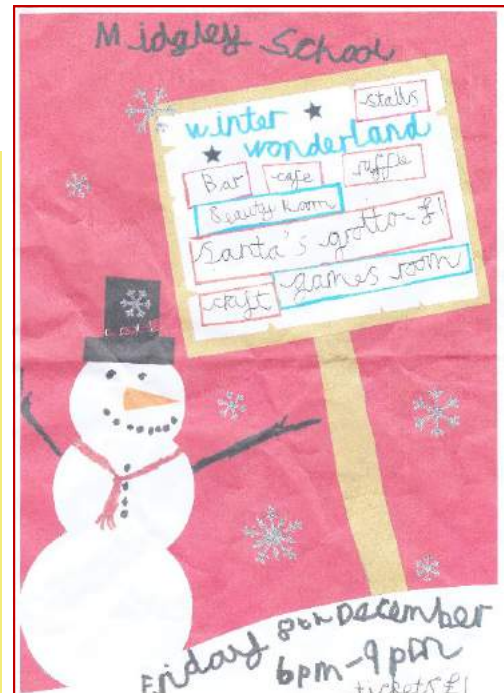 Midgley School
stalls
winter
wonderland
Bar cafe raffle
Beauty Room
Santa's grotto-£1
craft games room
Friday 8th December
6pm-9pm
tickets £1